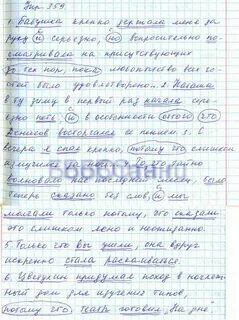 Упр. 359
1. Бабушка крепко держала меня за
руку и серьёзно, но вопросительно по-
сматривала на присутствующих
до тех пор, пока любопытство всех го-
стей было удовлетворено. 2. Наташа
в эту зиму в первый раз начала серь-
ёзно петь и в особенности оттого что
Денисов восторгался её пением. 3. С
вечера я спал крепко, потому что слишком
измучился за ночь. 4. То, что тайно
волновало нас последние месяцы, было
теперь сказано без слов, и мы
молчали только потому, что сказали
это слишком ясно и неожиданно.
5. Только что вы ушли, она вдруг
искренно стала раскаиваться.
6. Цветухин придумал поход в ночлеж-
ный дом для изучения типов,
потому что театр готовил „На дне"